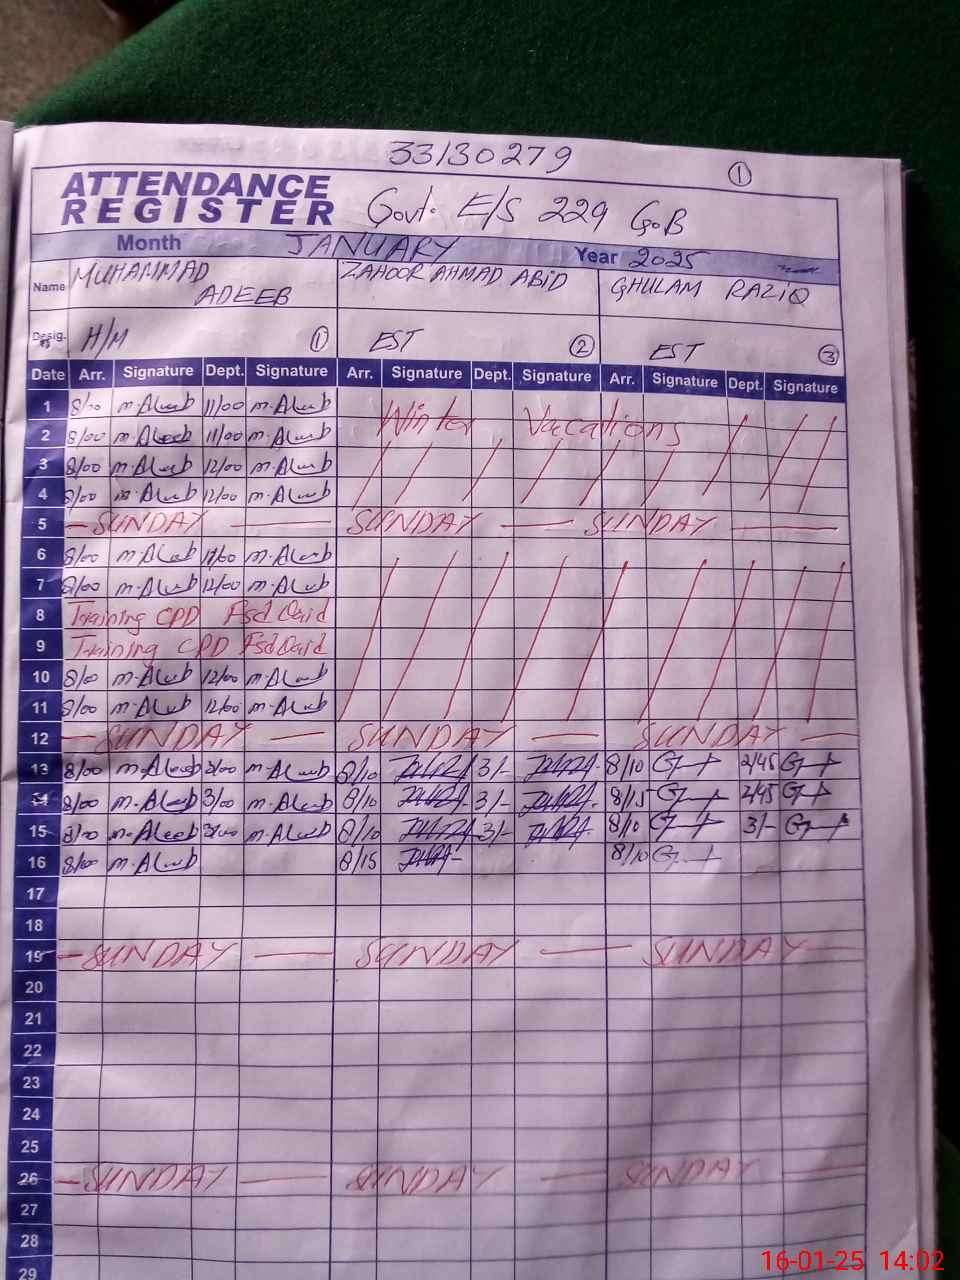 33130279
1
ATTENDANCE
REGISTER Govt. E/S 229 GoB
Month JANUARY Year 2025
Name MUHAMMAD ADEEB ZAHOOR AHMAD ABID GHULAM RAZIQ
Desig. H/M 1 EST 2 EST 3
Date Arr. Signature Dept. Signature Arr. Signature Dept. Signature Arr. Signature Dept. Signature
1 8/00 m.ALeeb 11/00 m.ALeeb Winter Vacations
2 8/00 m.ALeeb 11/00 m.ALeeb
3 8/00 m.ALeeb 12/00 m.ALeeb
4 8/00 m.ALeeb 12/00 m.ALeeb
5 - SUNDAY — SUNDAY — SUNDAY —
6 8/00 m.ALeeb 12/00 m.ALeeb
7 8/00 m.ALeeb 12/00 m.ALeeb
8 Training CPD Fsd
9 Training CPD Fsd
10 8/00 m.ALeeb 12/00 m.ALeeb
11 8/00 m.ALeeb 12/00 m.ALeeb
12 — SUNDAY — SUNDAY — SUNDAY —
13 8/00 m.ALeeb m.ALeeb 8/10 3/- 8/10 2/45
14 8/00 m.ALeeb 3/00 m.ALeeb 8/10 3/- 8/15 2/45
15 8/00 m.ALeeb 3/00 m.ALeeb 8/10 3/- 8/10 3/-
16 8/00 m.ALeeb 8/15 8/10
17
18
19 - SUNDAY — SUNDAY — SUNDAY —
20
21
22
23
24
25
26 - SUNDAY — SUNDAY — SUNDAY —
27
28
29
16-01-25 14:02